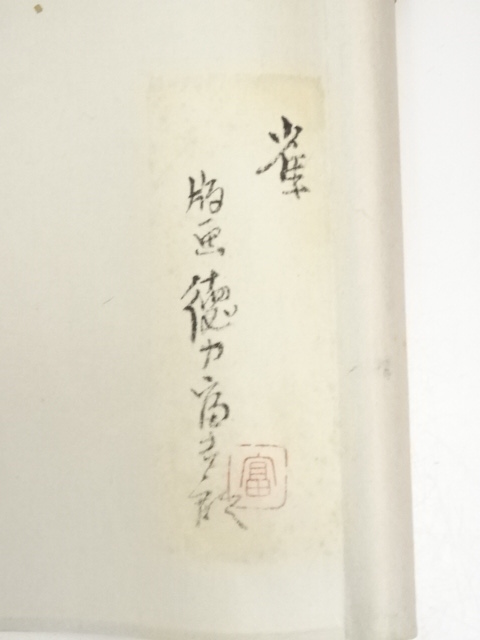 雀
版画 徳力富吉郎
富